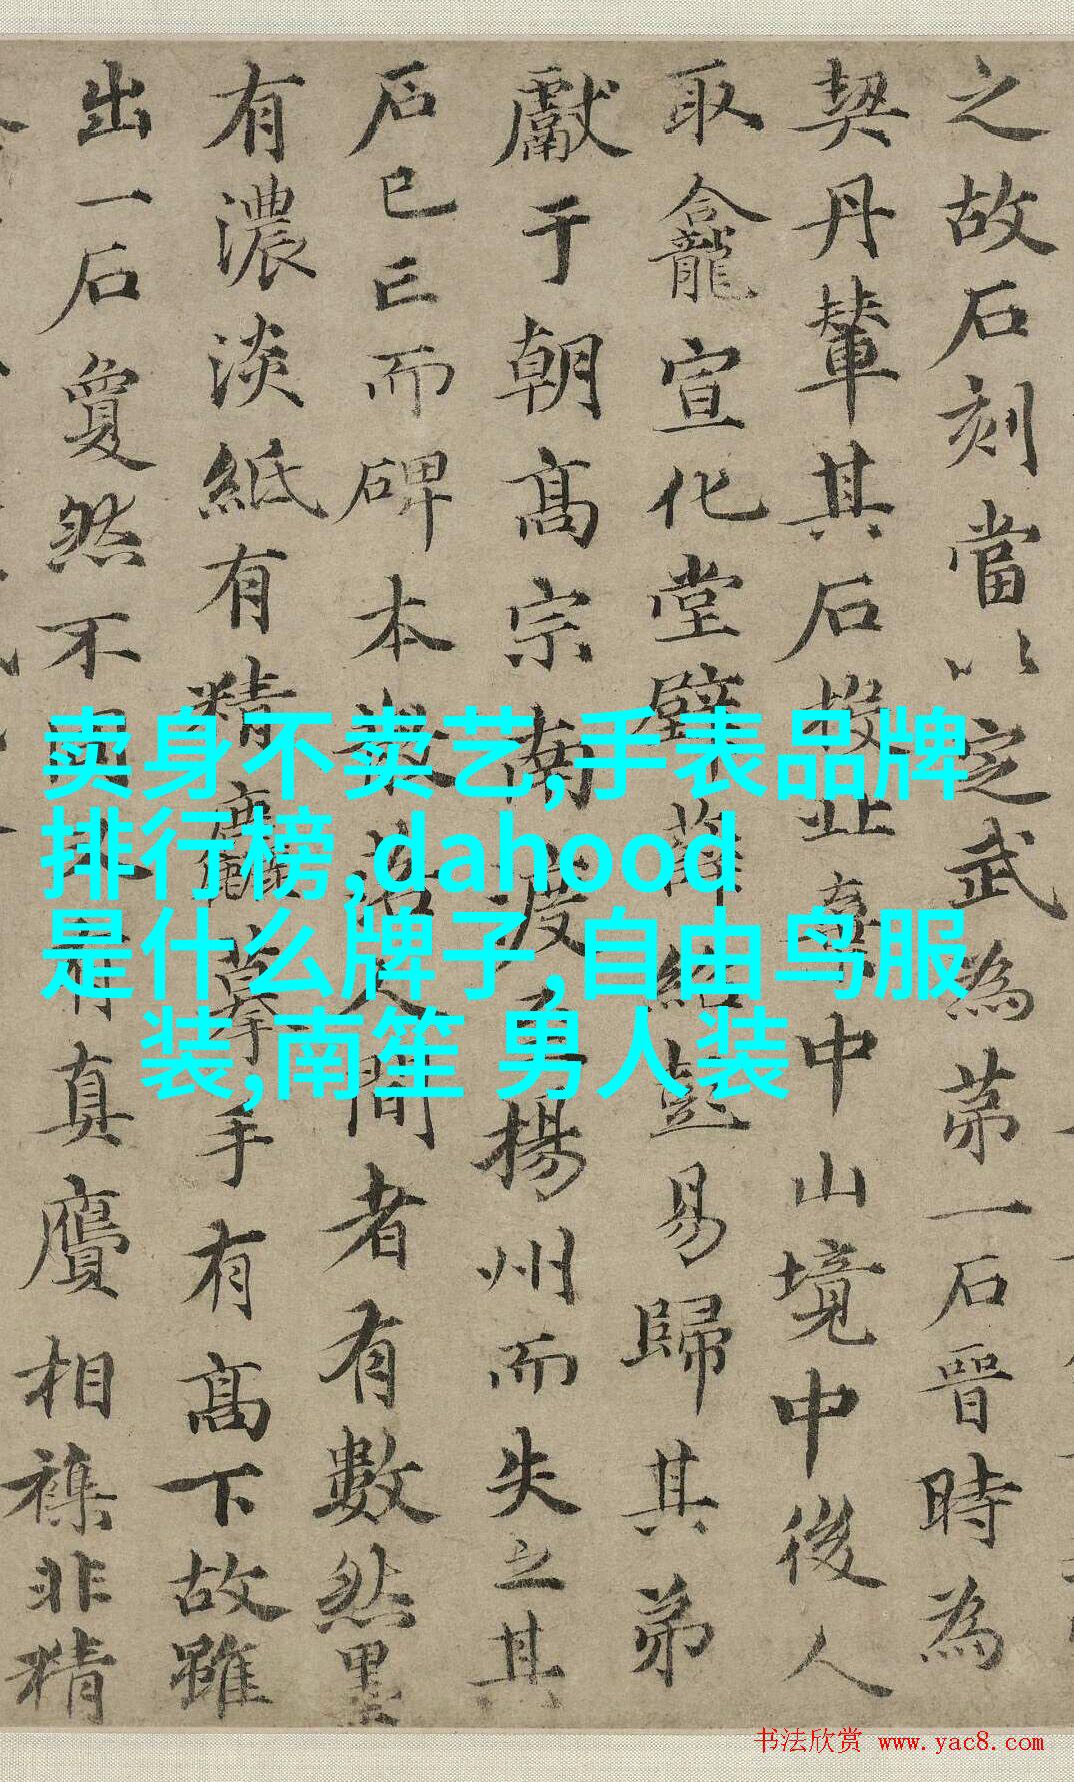 之故石刻當以定武為苐一石晉時為
契丹輦其石投棄中山境中後人
取龕宣化堂壁薛紹彭易歸其弟
獻于朝高宗南渡揚州而失之其
石已亡而碑本散落人間者有數然墨
有濃淡紙有精麤摹手有高下故雖
出一石夐然不同有真贗相襍非精
卖身不卖艺,手表品牌
排行榜,dahood
是什么牌子,自由鸟服
装,南笙 男人装
书法欣赏 www.yac8.com